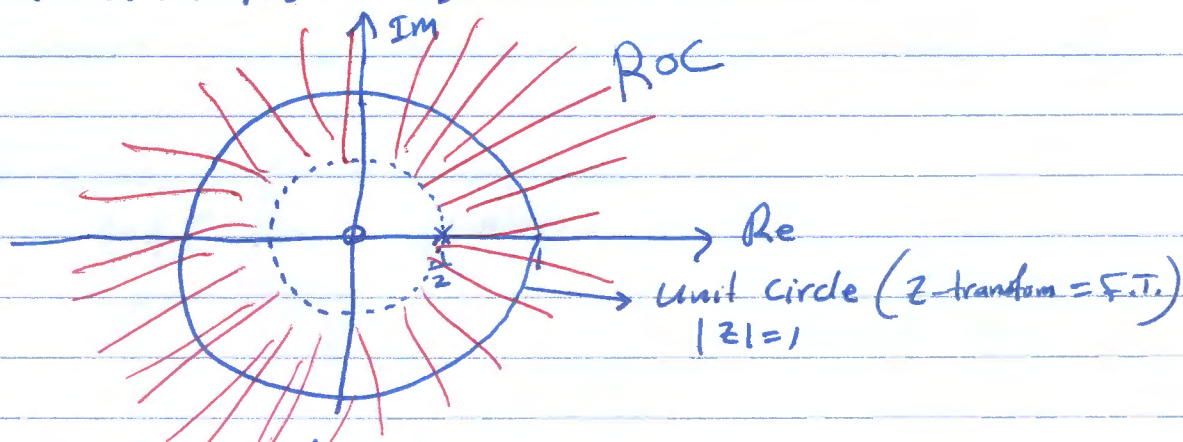 Im
RoC
Re
1/2
1
Unit Circle (Z-transfom = F.T.)
|Z|=1